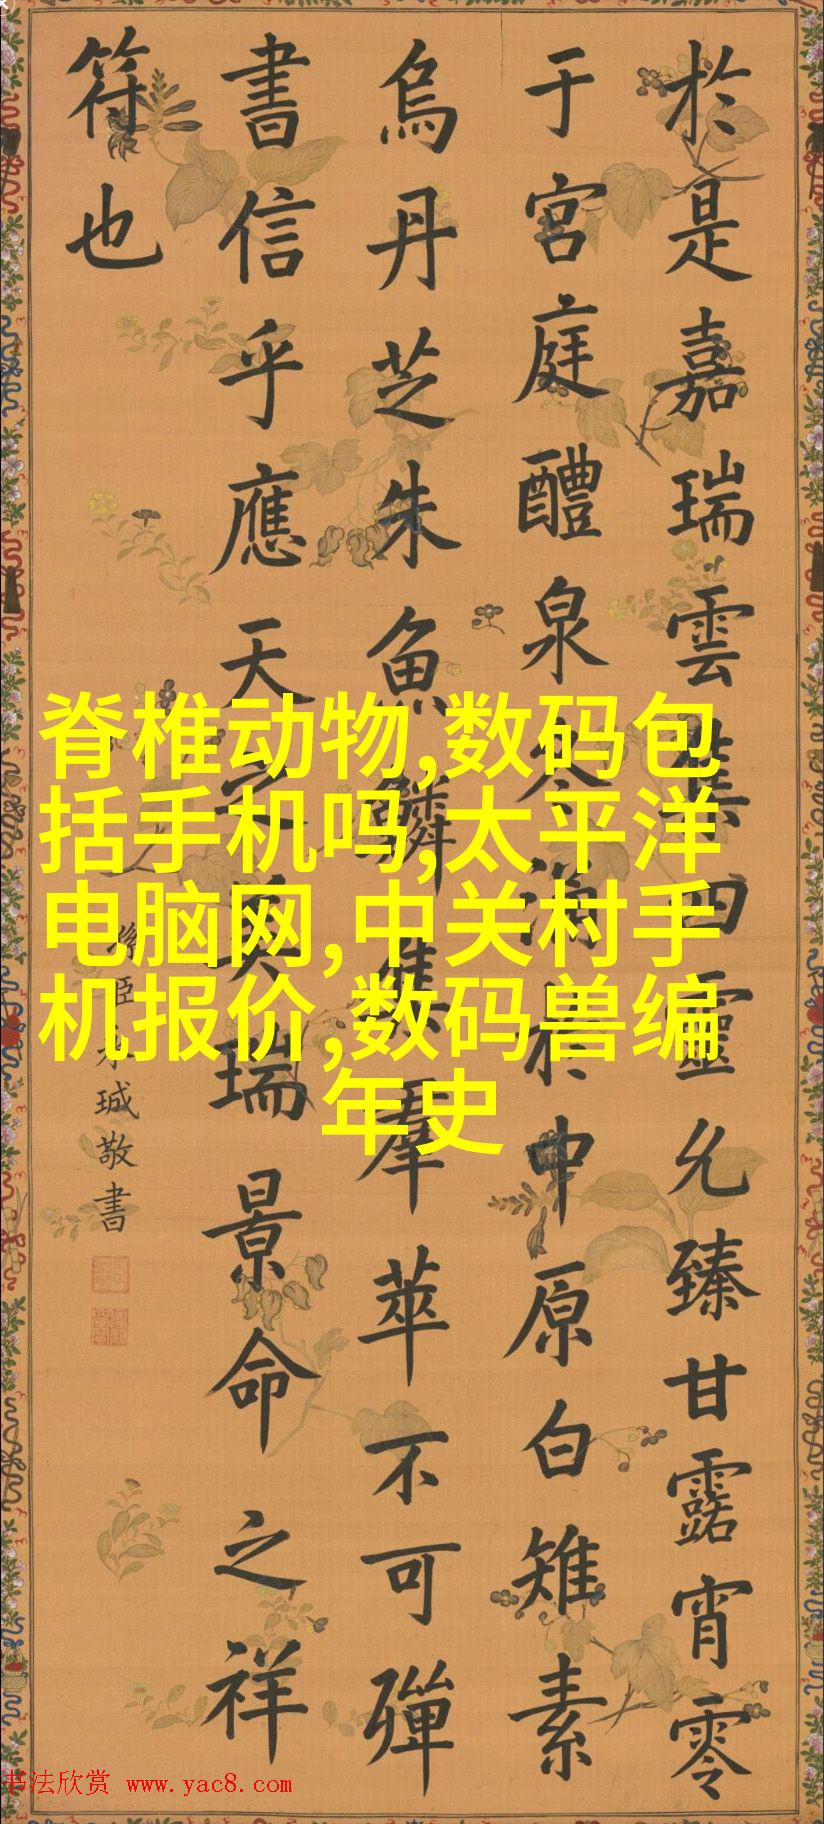 於是嘉瑞雲集四靈允臻甘露宵零
于宮庭醴泉冬涌於中原白雉素
烏丹芝朱魚鱗集羣萃不可殫
書信乎應天之美瑞景命之祥
符也
臣永珹敬書
脊椎动物,数码包
括手机吗,太平洋
电脑网,中关村手
机报价,数码兽编
年史
书法欣赏 www.yac8.com